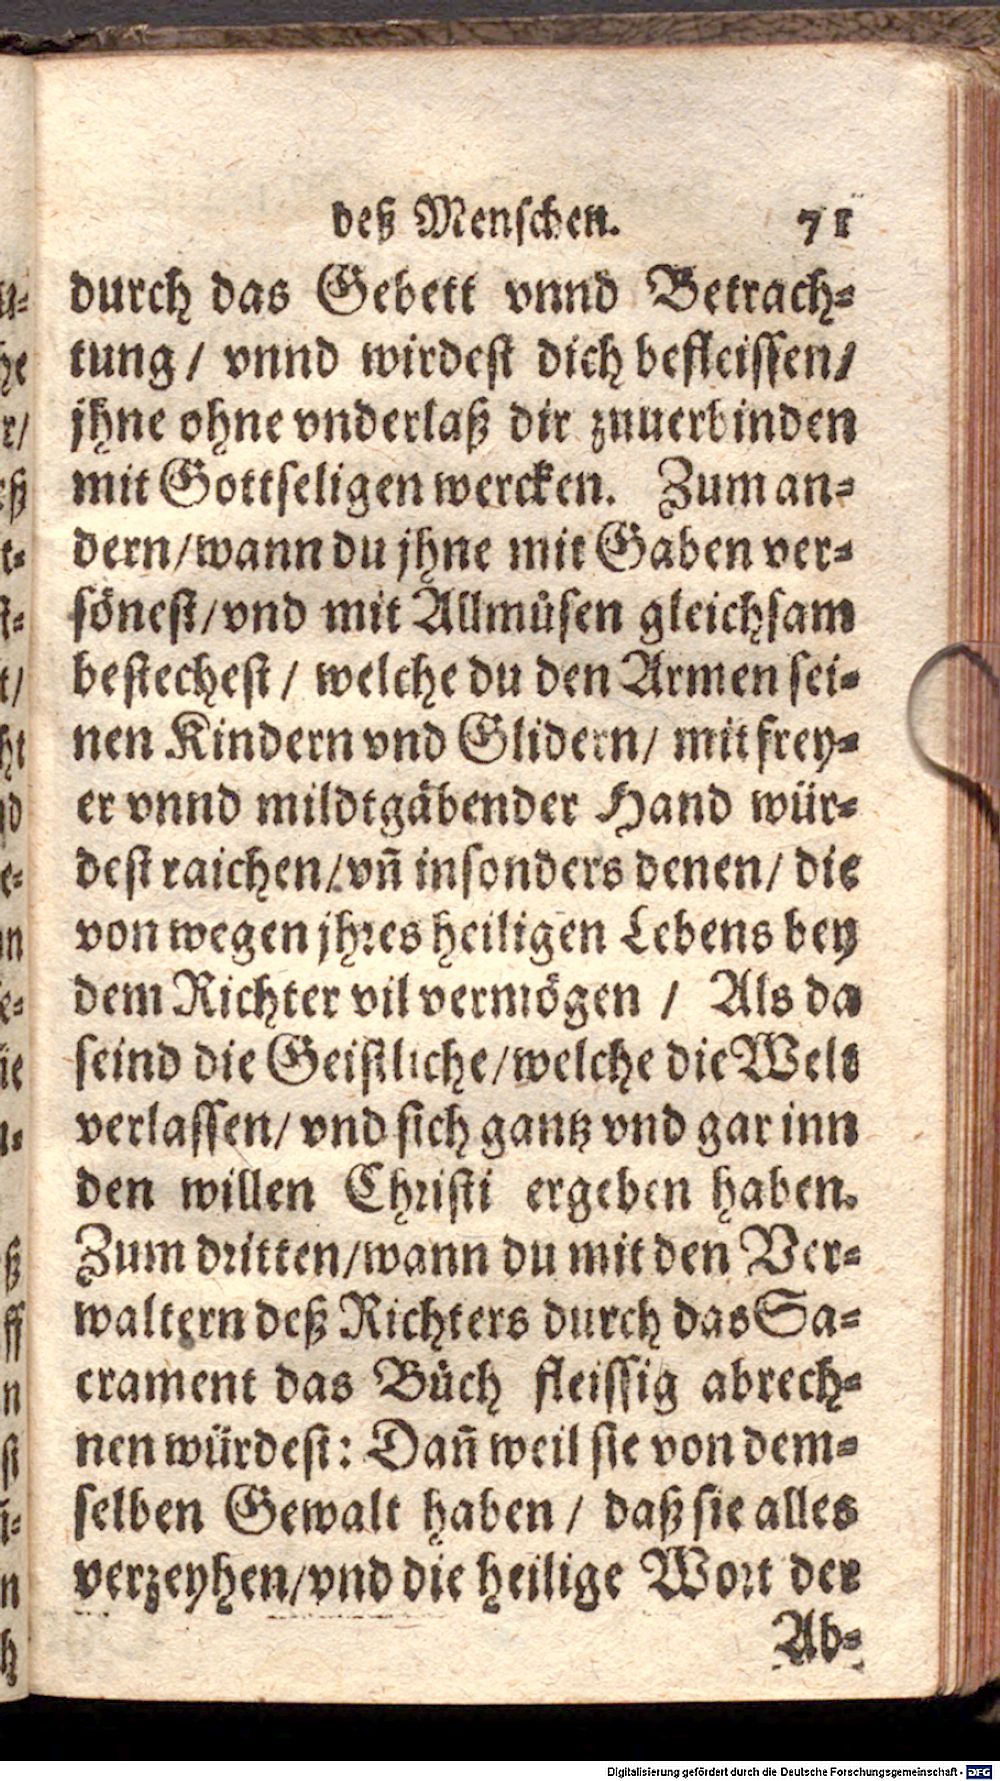 deß Menschen. 71
durch das Gebett vnnd Betrach-
tung / vnnd wirdest dich befleissen /
jhne ohne vnderlaß dir zuuerbinden
mit Gottseligen wercken. Zum an-
dern / wann du jhne mit Gaben ver-
sönest / vnd mit Allmůsen gleichsam
bestechest / welche du den Armen sei-
nen Kindern vnd Glidern / mit frey-
er vnnd mildtgäbender Hand wür-
dest raichen / vñ insonders denen / die
von wegen jhres heiligen Lebens bey
dem Richter vil vermögen / Als da
seind die Geistliche / welche die Welt
verlassen / vnd sich gantz vnd gar inn
den willen Christi ergeben haben.
Zum dritten / wann du mit den Ver-
waltern deß Richters durch das Sa-
crament das Bůch fleissig abrech-
nen würdest: Dañ weil sie von dem-
selben Gewalt haben / daß sie alles
verzeyhen / vnd die heilige Wort der
Ab-
Digitalisierung gefördert durch die Deutsche Forschungsgemeinschaft - DFG